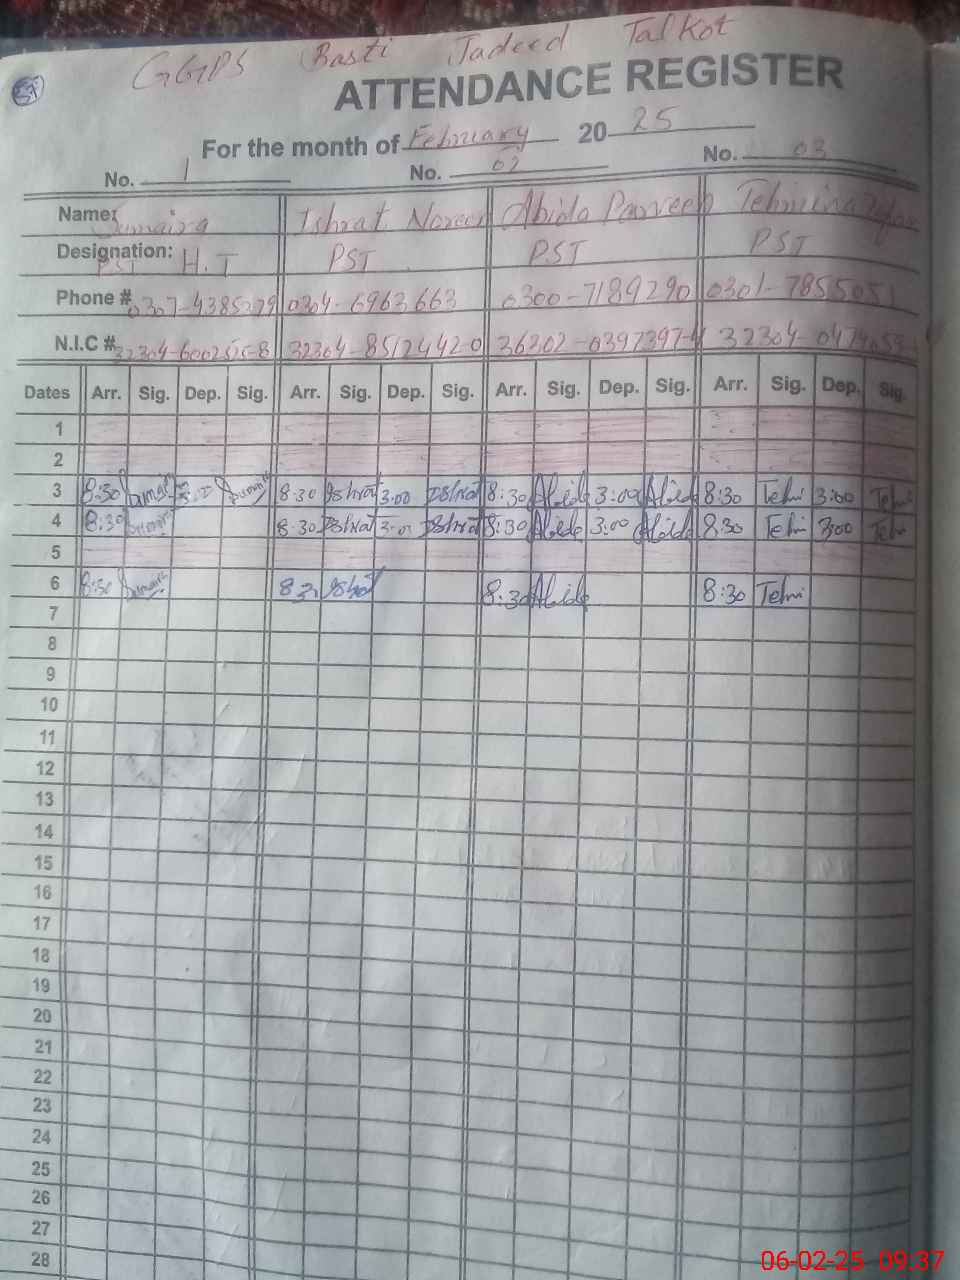 GGPS Basti Jadeed Talkot
ATTENDANCE REGISTER
For the month of February 2025
No. 1 No. 02 No. 03
Name: Sumaira Ishrat Noreen Abida Parveen Tehmina
Designation: PST H.T PST PST PST
Phone # 0307-4385279 0304-6963663 0300-7189290 0301-7855051
N.I.C # 32304-8512442-0 36302-0397397-4 32304-
Dates Arr. Sig. Dep. Sig. Arr. Sig. Dep. Sig. Arr. Sig. Dep. Sig. Arr. Sig. Dep. Sig.
1
2
3 8:30 Sumaira Sumaira 8:30 Ishrat 3:00 Ishrat 8:30 Abida 3:00 Abida 8:30 Tehmi 3:00 Tehmi
4 8:30 Sumaira 8:30 Ishrat 3:00 Ishrat 8:30 Abida 3:00 Abida 8:30 Tehmi 3:00 Tehmi
5
6 8:30 Sumaira 8:30 Ishrat 8:30 Abida 8:30 Tehmi
7
8
9
10
11
12
13
14
15
16
17
18
19
20
21
22
23
24
25
26
27
28
06-02-25 09:37